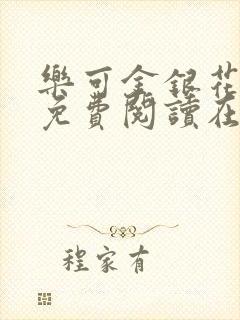 樂可金銀花
免費閱讀在
程家有